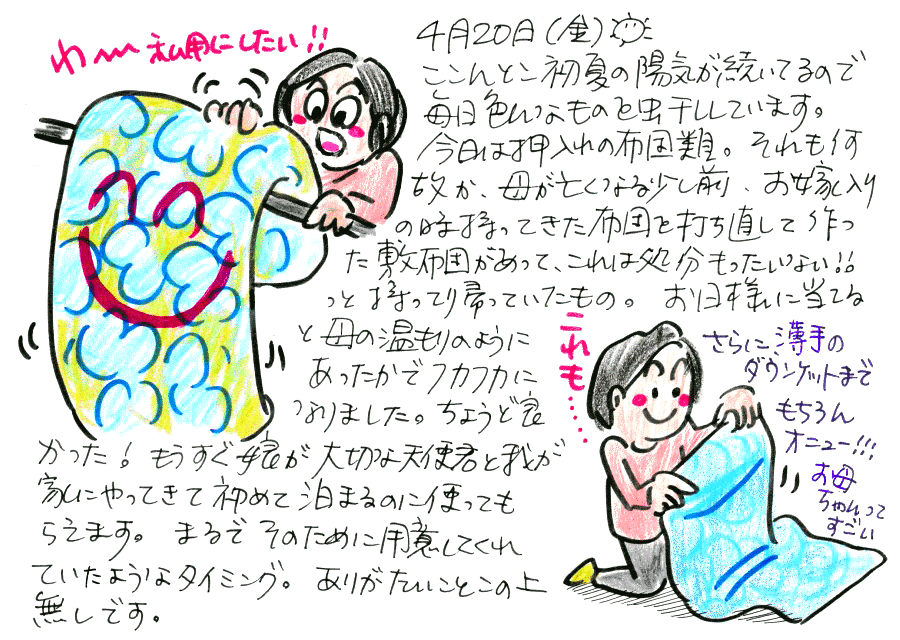 わ〜 私用にしたい!!
4月20日(金)
ここんとこ初夏の陽気が続いてるので
毎日色んなものを虫干ししています。
今日は押入れの布団類。それも何
故か、母が亡くなる少し前、お嫁入り
の時持ってきた布団を打ち直して作っ
た敷布団があって、これは処分もったいない!!
っと持ってり帰っていたもの。お日様に当てる
と母の温もりのように
あったかでフカフカに
なりました。ちょうど良
かった!もうすぐ娘が大切な天使君と我が
家にやってきて初めて泊まるのに使っても
らえます。まるでそのために用意してくれ
ていたようなタイミング。ありがたいことこの上
無しです。
これも…
さらに薄手の
ダウンケットまで
もちろん
オニュー!!!
お母
ちゃんって
すごい